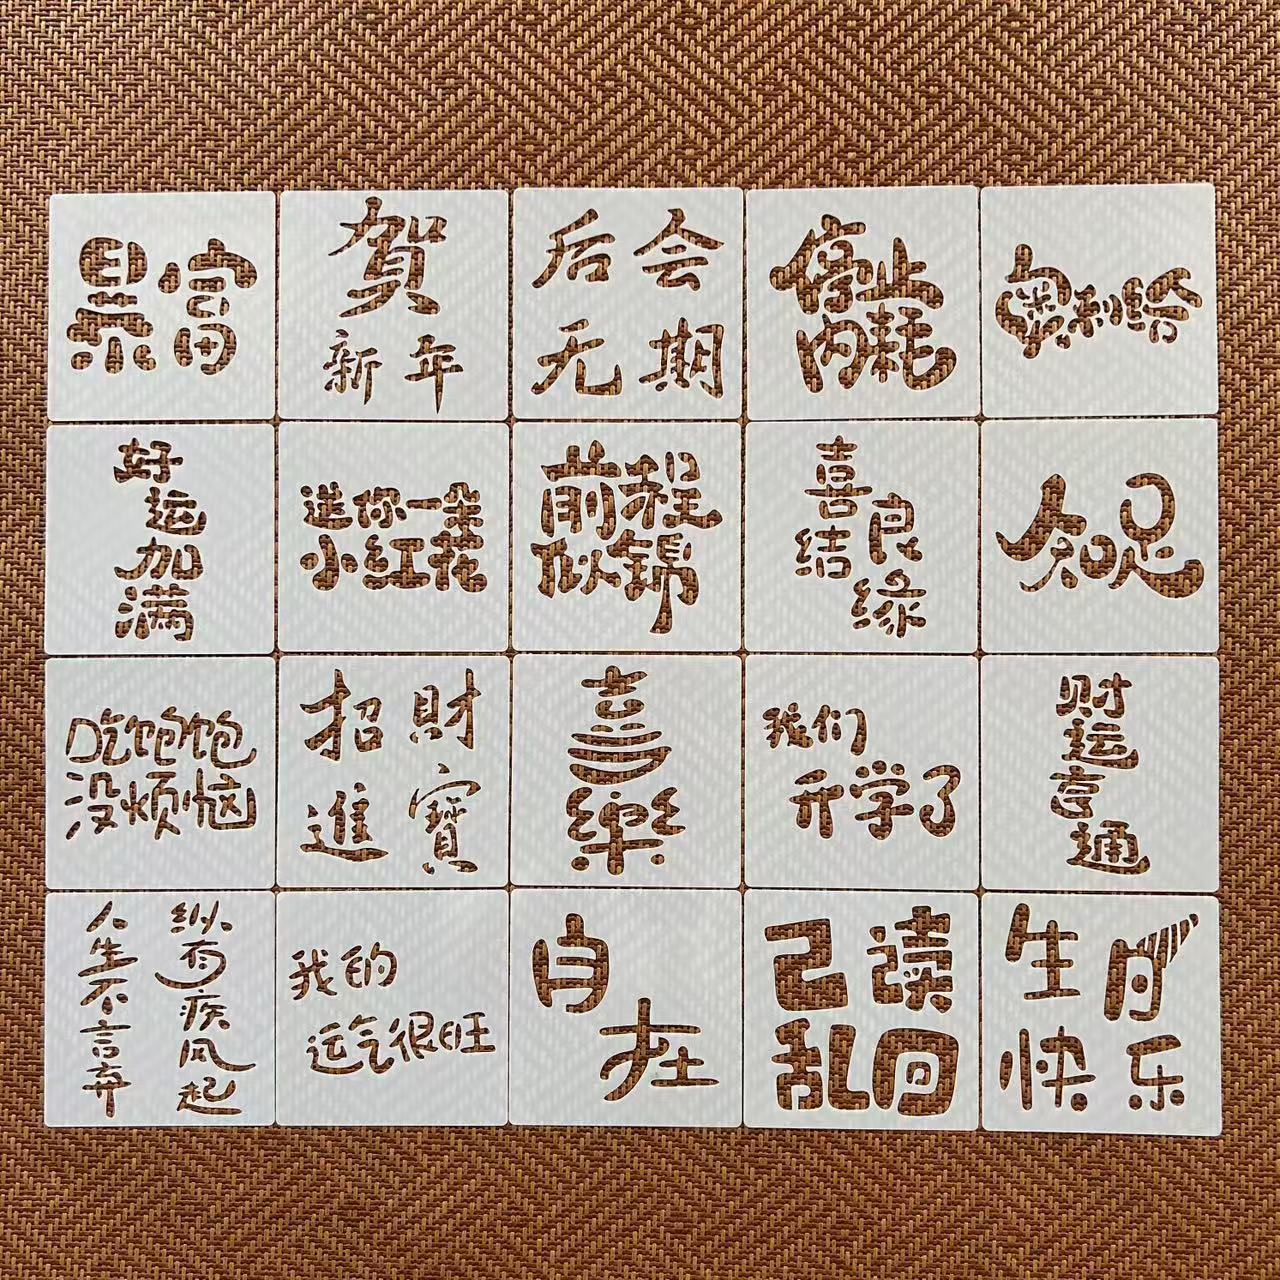 暴富
賀
新年
后会
无期
停止
内耗
奥利给
好
运
加
满
送你一朵
小红花
前程
似锦
喜
良
结
缘
知足
吃饱饱
没烦恼
招財
進寶
喜
樂
我们
开学了
财
运
亨
通
纵有疾风起
人生不言弃
我的
运气很旺
自
在
已读
乱回
生日
快乐